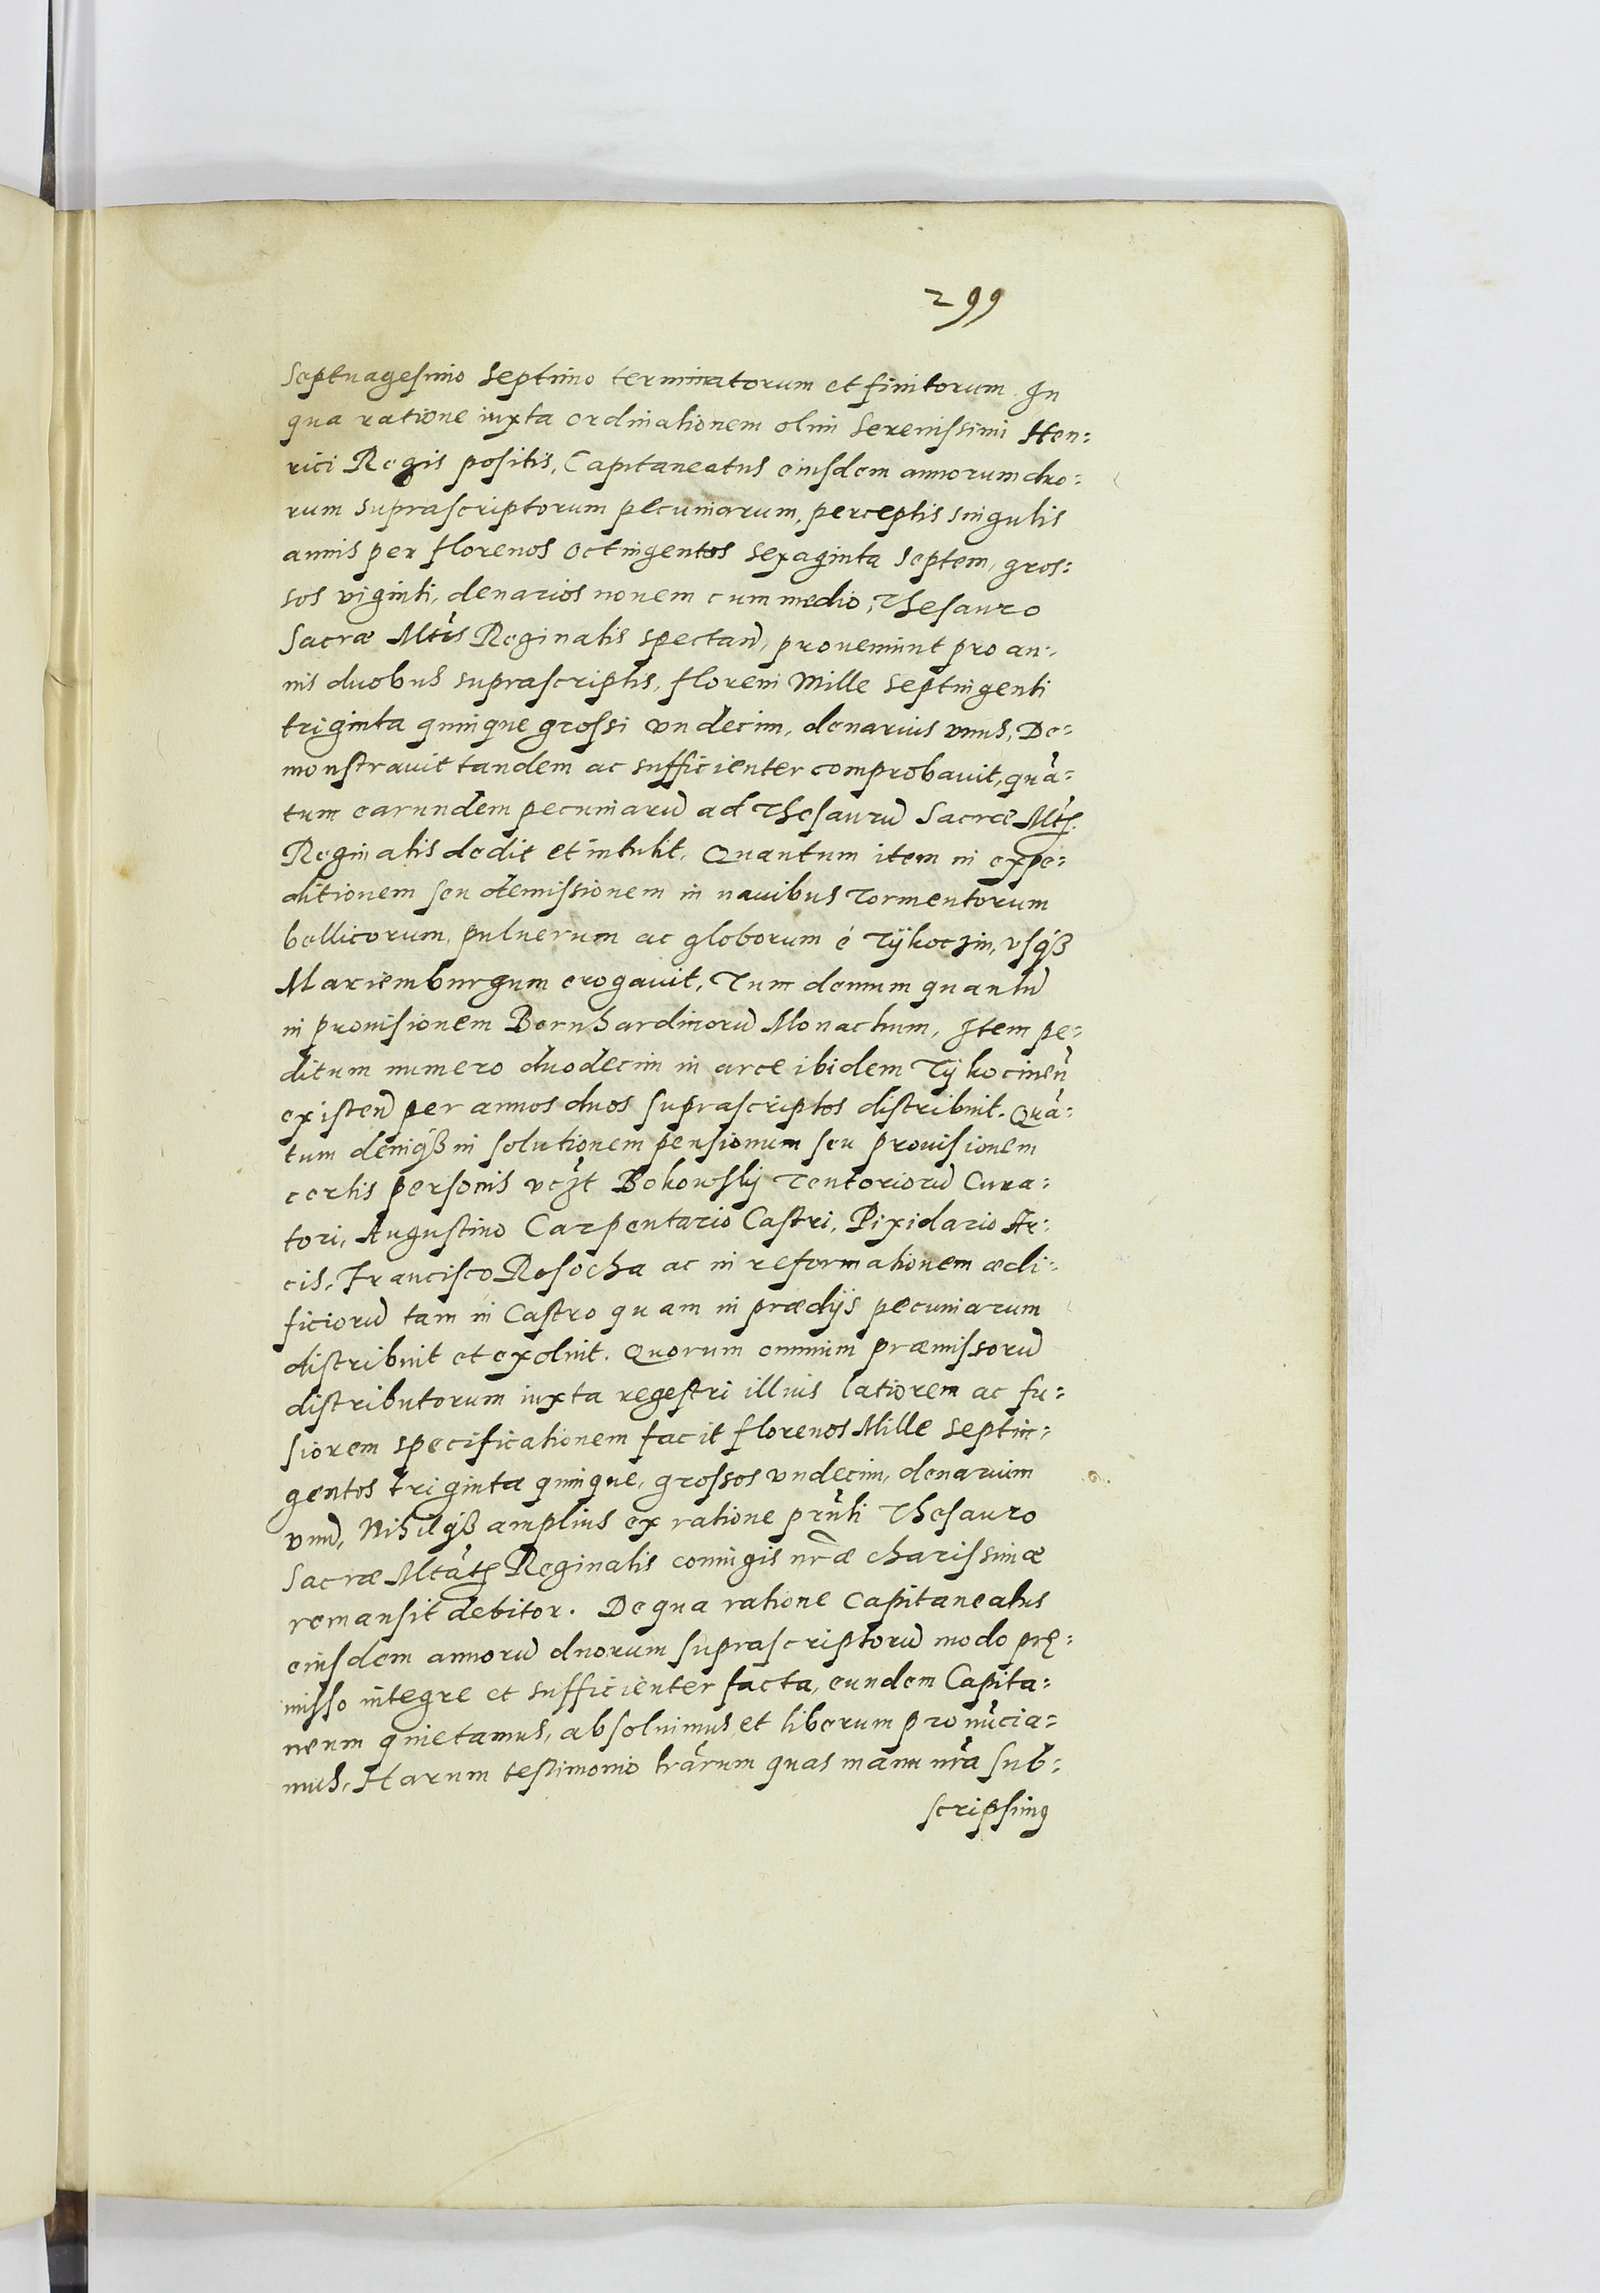 299
Septuagesimo Septimo terminatorum et finitorum. In
qua ratione iuxta ordinationem olim Serenissimi Hen:
rici Regis positis, Capitaneatus eiusdem annorum duo:
rum suprascriptorum pecuniarum, perceptis singulis
annis per florenos octingentos sexaginta septem, gros:
sos viginti, denarios novem cum medio, Thesauro
Sacræ Mtis Reginalis spectañ, proueniunt pro an:
nis duobus suprascriptis, floreni Mille Septingenti
triginta quinque grossi vndecim, denarius vnus, De:
monstrauit tandem ac sufficienter comprobauit, quā:
tum earundem pecuniarū ad Thesaurū Sacræ Mtis
Reginalis dedit et intulit. Quantum item in expe:
ditionem seu demissionem in nauibus Tormentorum
bellicorum, puluerum ac globorum é Tÿkoczin, vsqß
Mariemburgum erogauit, Tum demum quantū
in prouisionem Bernhardinorū Monachum, Item pe:
ditum numero duodecim in arce ibidem Tÿkocineñ
existeñ per annos duos suprascriptos distribuit. Quā:
tum deniqß in solutionem pensionum seu prouisionem
certis personis vczt Bokowskij Tentoriorū Cura:
tori, Augustino Carpentario Castri, Pixidario Ar:
cis, Francisco Rosocha ac in reformationem ædi:
ficiorū tam in Castro quam in prædijs pecuniarum
distribuit et exoluit. Quorum omnium præmissorū
distributorum iuxta regestri illius latiorem ac fu:
siorem specificationem facit florenos Mille Septin:
gentos triginta quinque, grossos vndecim, denarium
vnū, Nihilqß amplius ex ratione prñti Thesauro
Sacræ Mtātis Reginalis coniugis nræ charissimæ
remansit debitor. De qua ratione Capitaneatus
eiusdem annorū duorum suprascriptorū modo præ:
misso integre et sufficienter facta, eundem Capita:
neum quietamus, absoluimus et liberum pronūcia:
mus, Harum testimonio lrārum quas manu nrā sub:
scripsimus